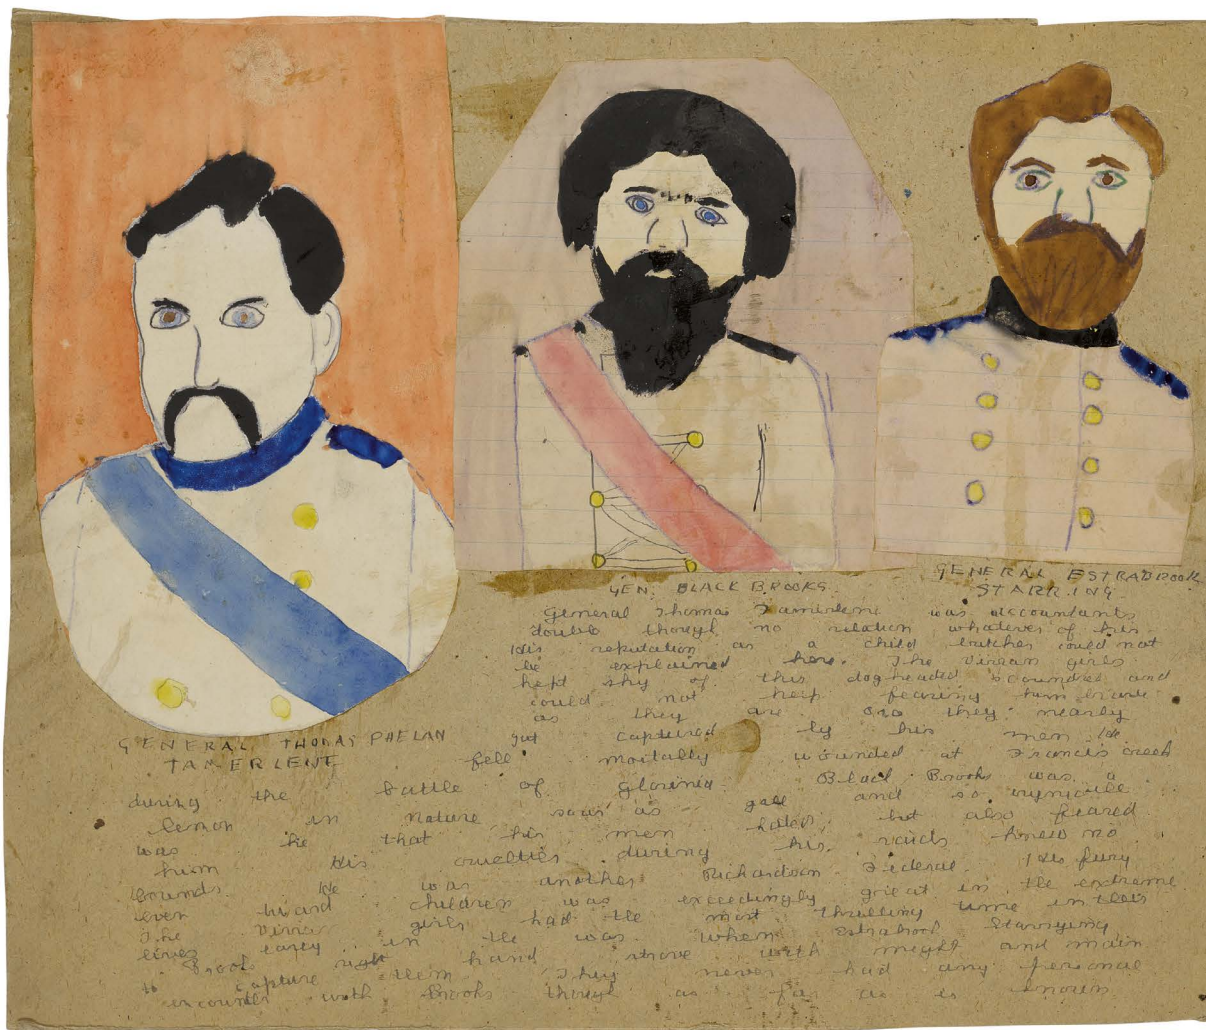 GEN. BLACK BROOKS.
GENERAL ESTRABROOK
STARRING
GENERAL THOMAS PHELAN
TAMERLENE
General Thomas Tamerlene was accountants
double though no relation whatever of his
His reputation as a child butcher could not
be explained here. The Vivian girls
kept shy of this dogheaded scoundrel and
could not help fearing him brave
as they are. Oro they nearly
got captured by his men He
fell mortally wounded at Francis creek
during the battle of Glorinia Black Brooks was a
lemon in nature, sour as gall and so
was he that his men hated, but also feared
him His cruelties during his raids knew no
bounds. He was another Richardson Federal. His fury
even toward children was exceedingly great in the extreme
The Vivian girls had the most thrilling time in their
lives early in the war when Estabrook Starrying
Brooks right hand strove with might and main
to capture them They never had any personal
encounter with Brooks though as far as is known